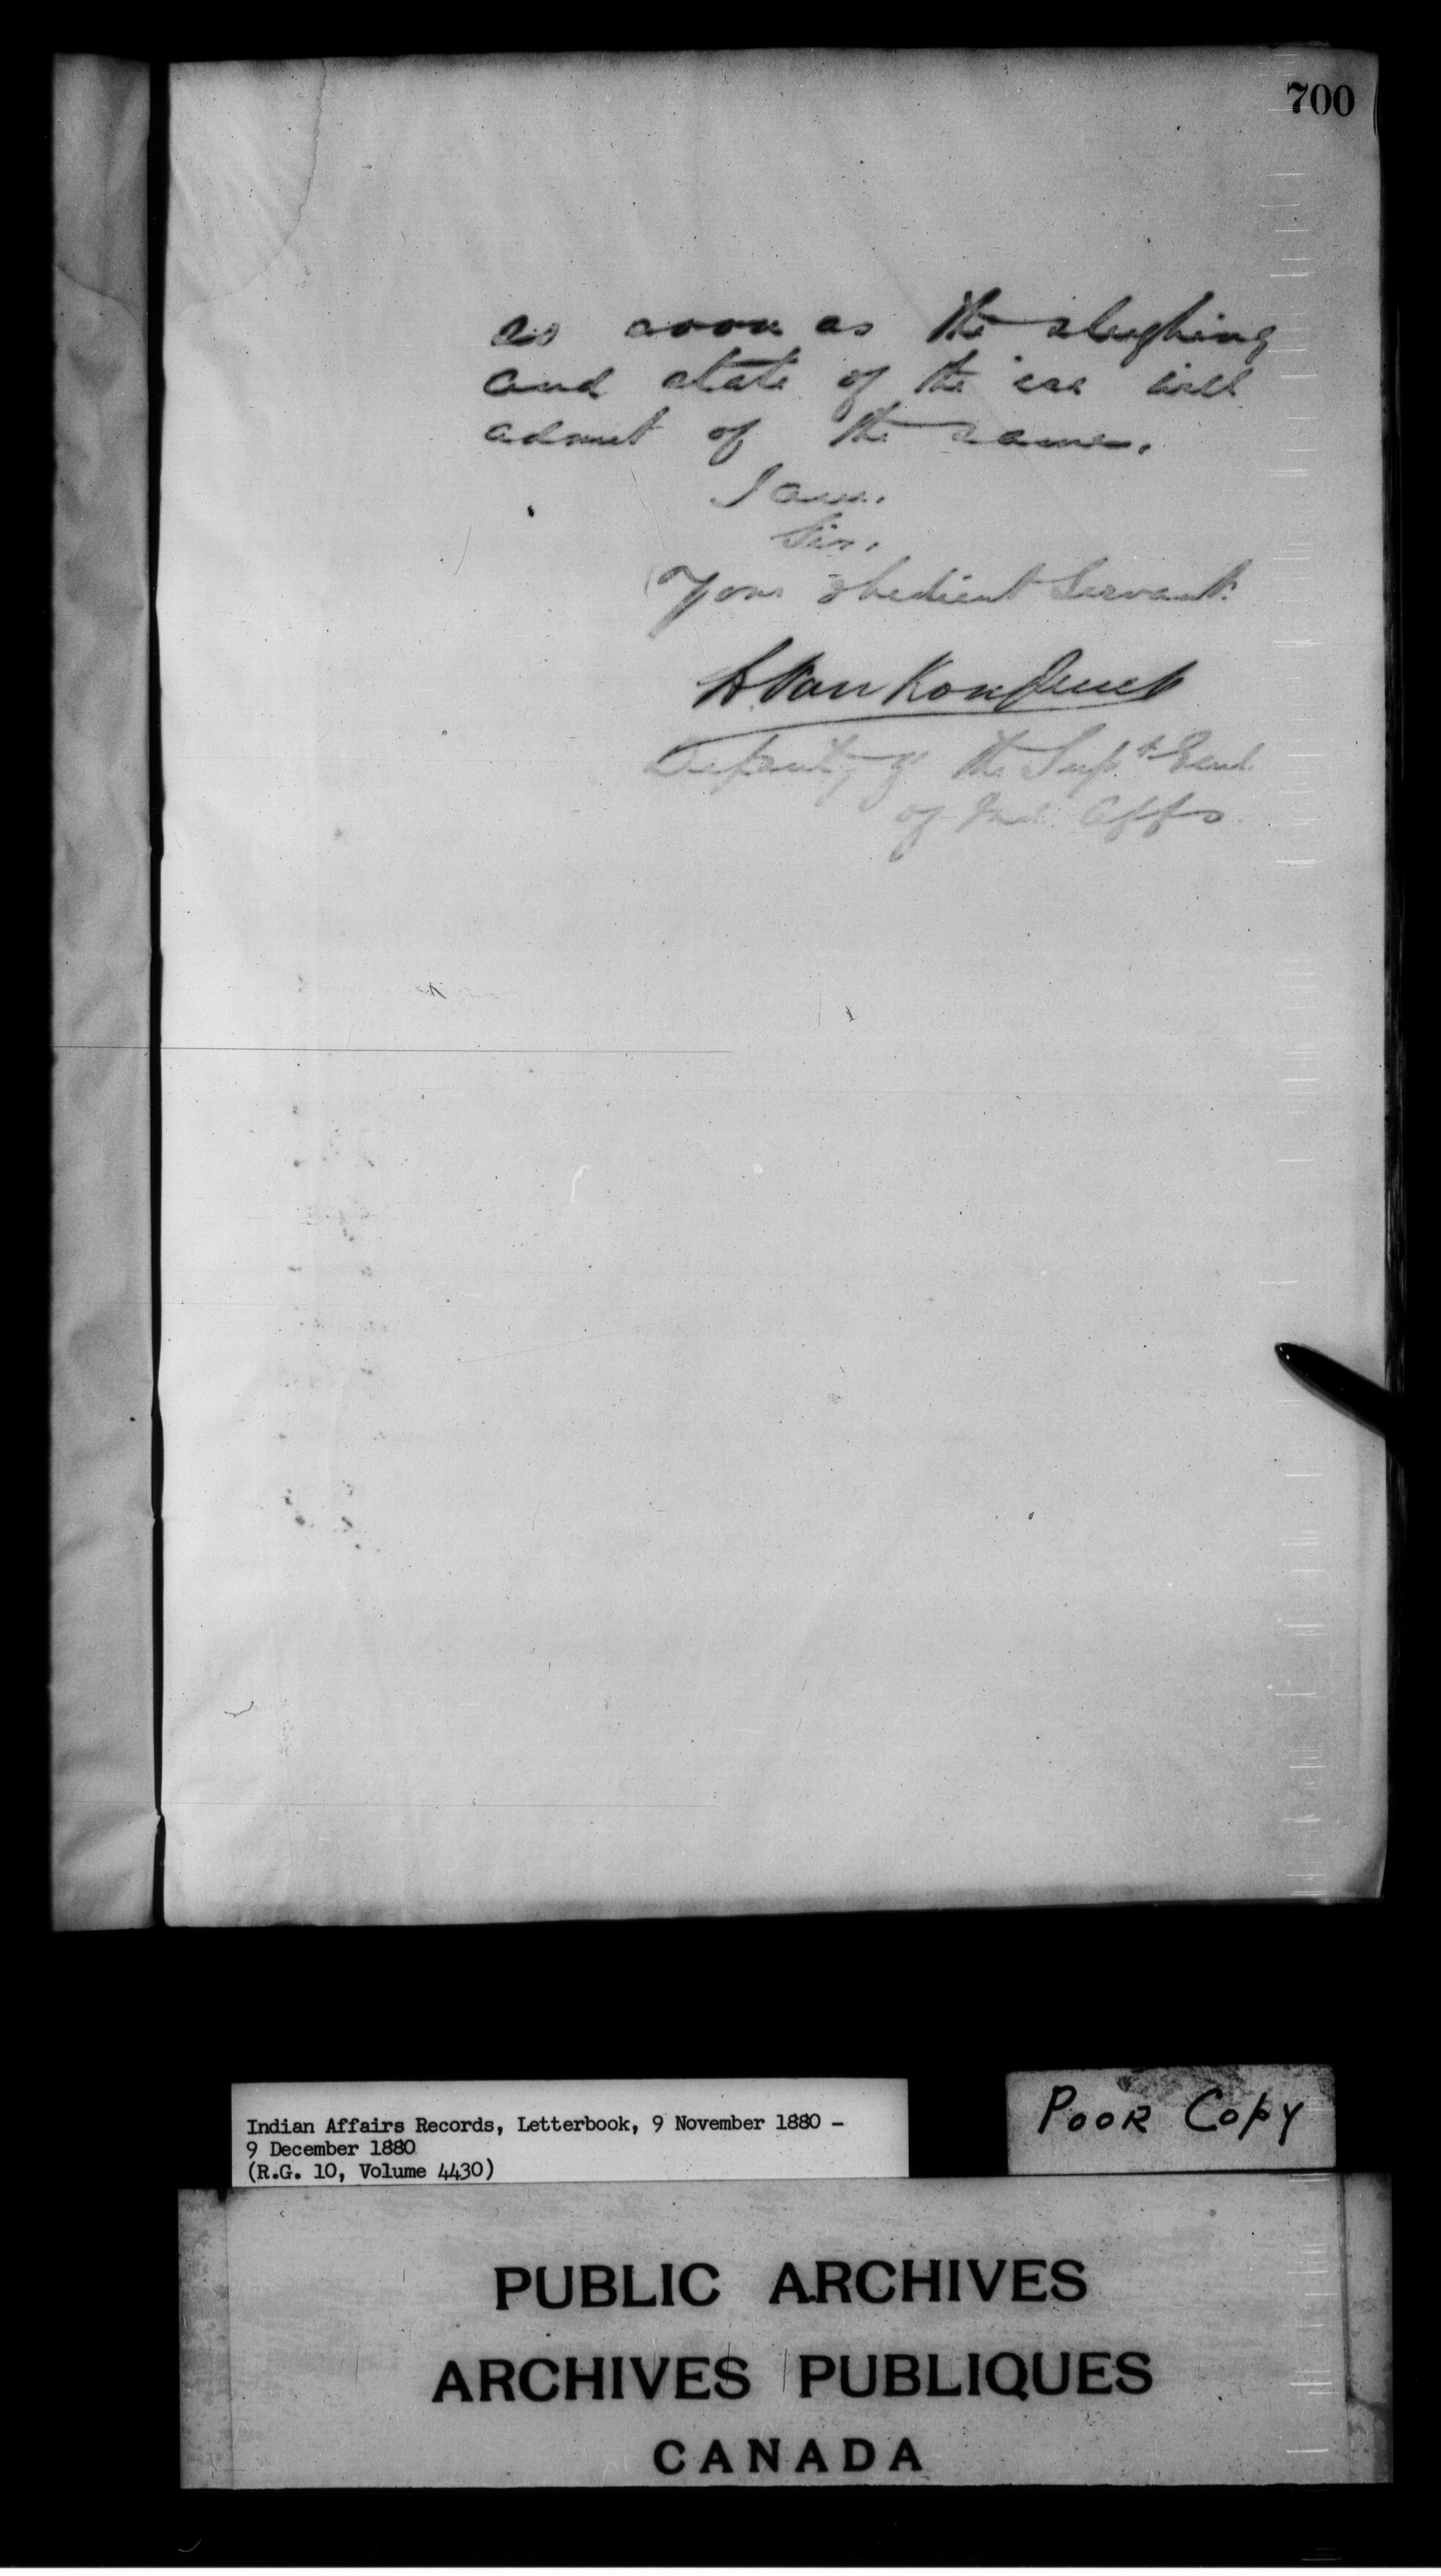 700
as soon as the sleighing
and state of the ice will
admit of the same.
I am.
Sir.
Your obedient Servant.
L. VanKoughnet
Deputy of the Supt. Genl.
of Ind. Affs
Indian Affairs Records, Letterbook, 9 November 1880 –
9 December 1880
(R.G. 10, Volume 4430)
POOR COPY
PUBLIC ARCHIVES
ARCHIVES PUBLIQUES
CANADA